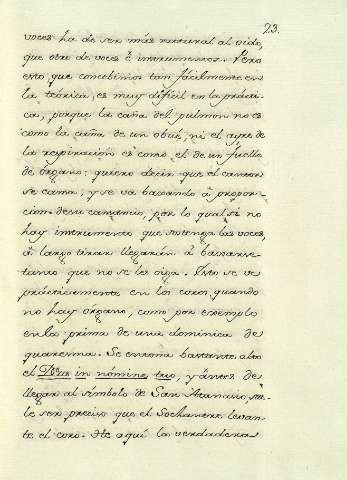 23.
voces ha de ser más natural al oido,
que otro de voces é instrumentos. Pero
esto que concebimos tan fácilmente en
la teórica, es muy dificil en la prácti-
ca, porque la caña del pulmon no es
como la caña de un obué, ni el ayre de
la respiración es como el de un fuelle
de órgano: quiero decir que el cantor
se cansa, y se va baxando á propor-
cion de su cansancio, por lo qual si no
hay instrumento que sostenga las voces,
á largo tirar llegarían á baxarse
tanto que no se les oiga. Esto se ve
prácticamente en los coros quando
no hay órgano, como por exemplo
en la prima de una dominica de
quaresma. Se entona bastante alto
el Deus in nomine tuo, y ántes de
llegar al símbolo de San Atanasio, sue-
le ser preciso que el Sochantre levan-
te el coro. He aquí la verdadera